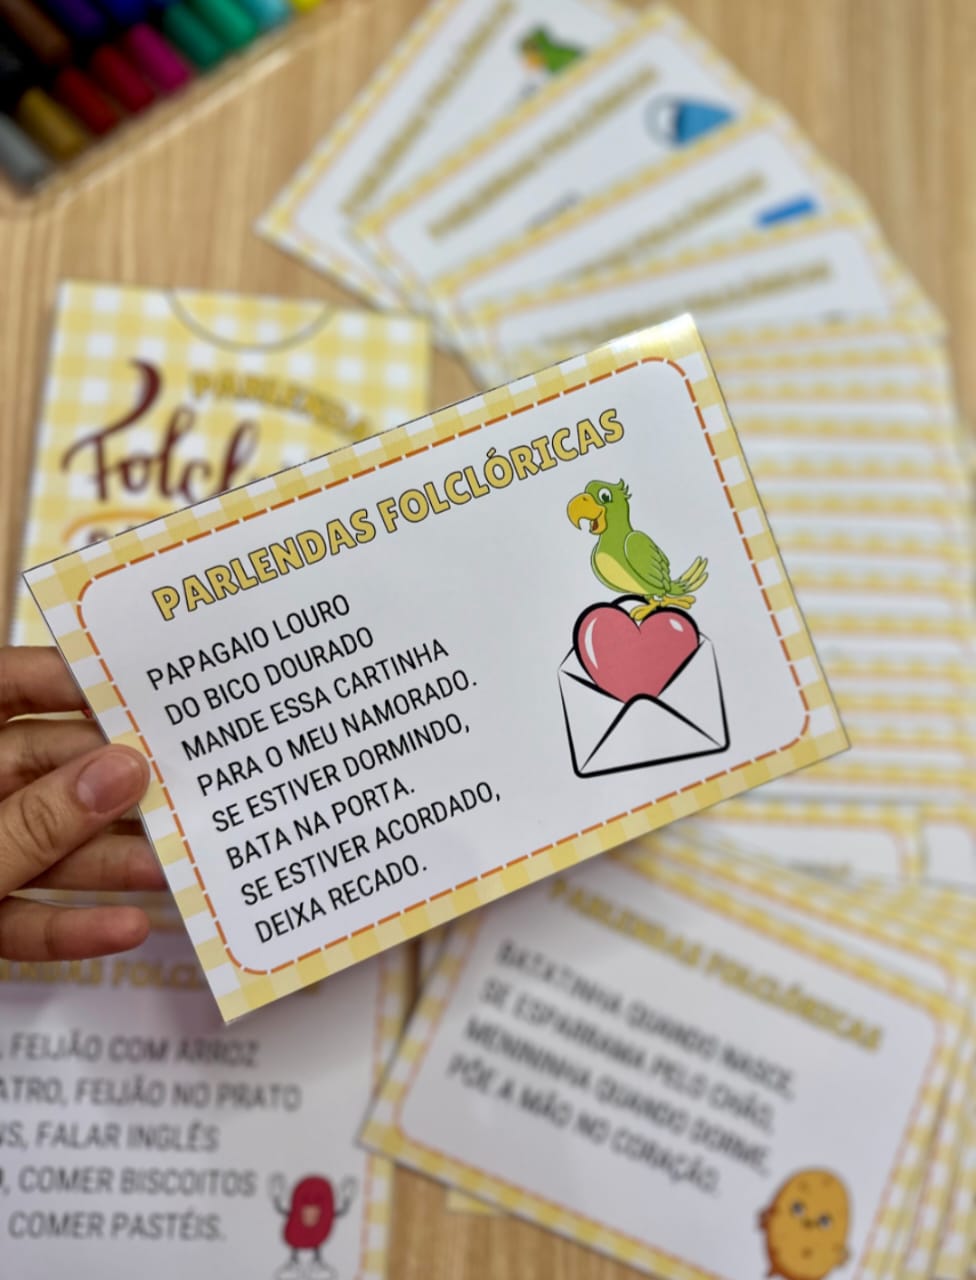 PARLENDAS FOLCLÓRICAS
PAPAGAIO LOURO
DO BICO DOURADO
MANDE ESSA CARTINHA
PARA O MEU NAMORADO.
SE ESTIVER DORMINDO,
BATA NA PORTA.
SE ESTIVER ACORDADO,
DEIXA RECADO.
PARLENDAS FOLCLÓRICAS
BATATINHA QUANDO NASCE,
SE ESPARRAMA PELO CHÃO,
MENININHA QUANDO DORME,
PÕE A MÃO NO CORAÇÃO.
FEIJÃO COM ARROZ
FEIJÃO NO PRATO
FALAR INGLÊS
COMER BISCOITOS
COMER PASTÉIS.